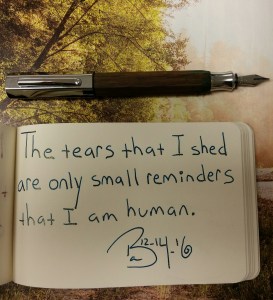 The tears that I shed
are only small reminders
that I am human.
12-14-16